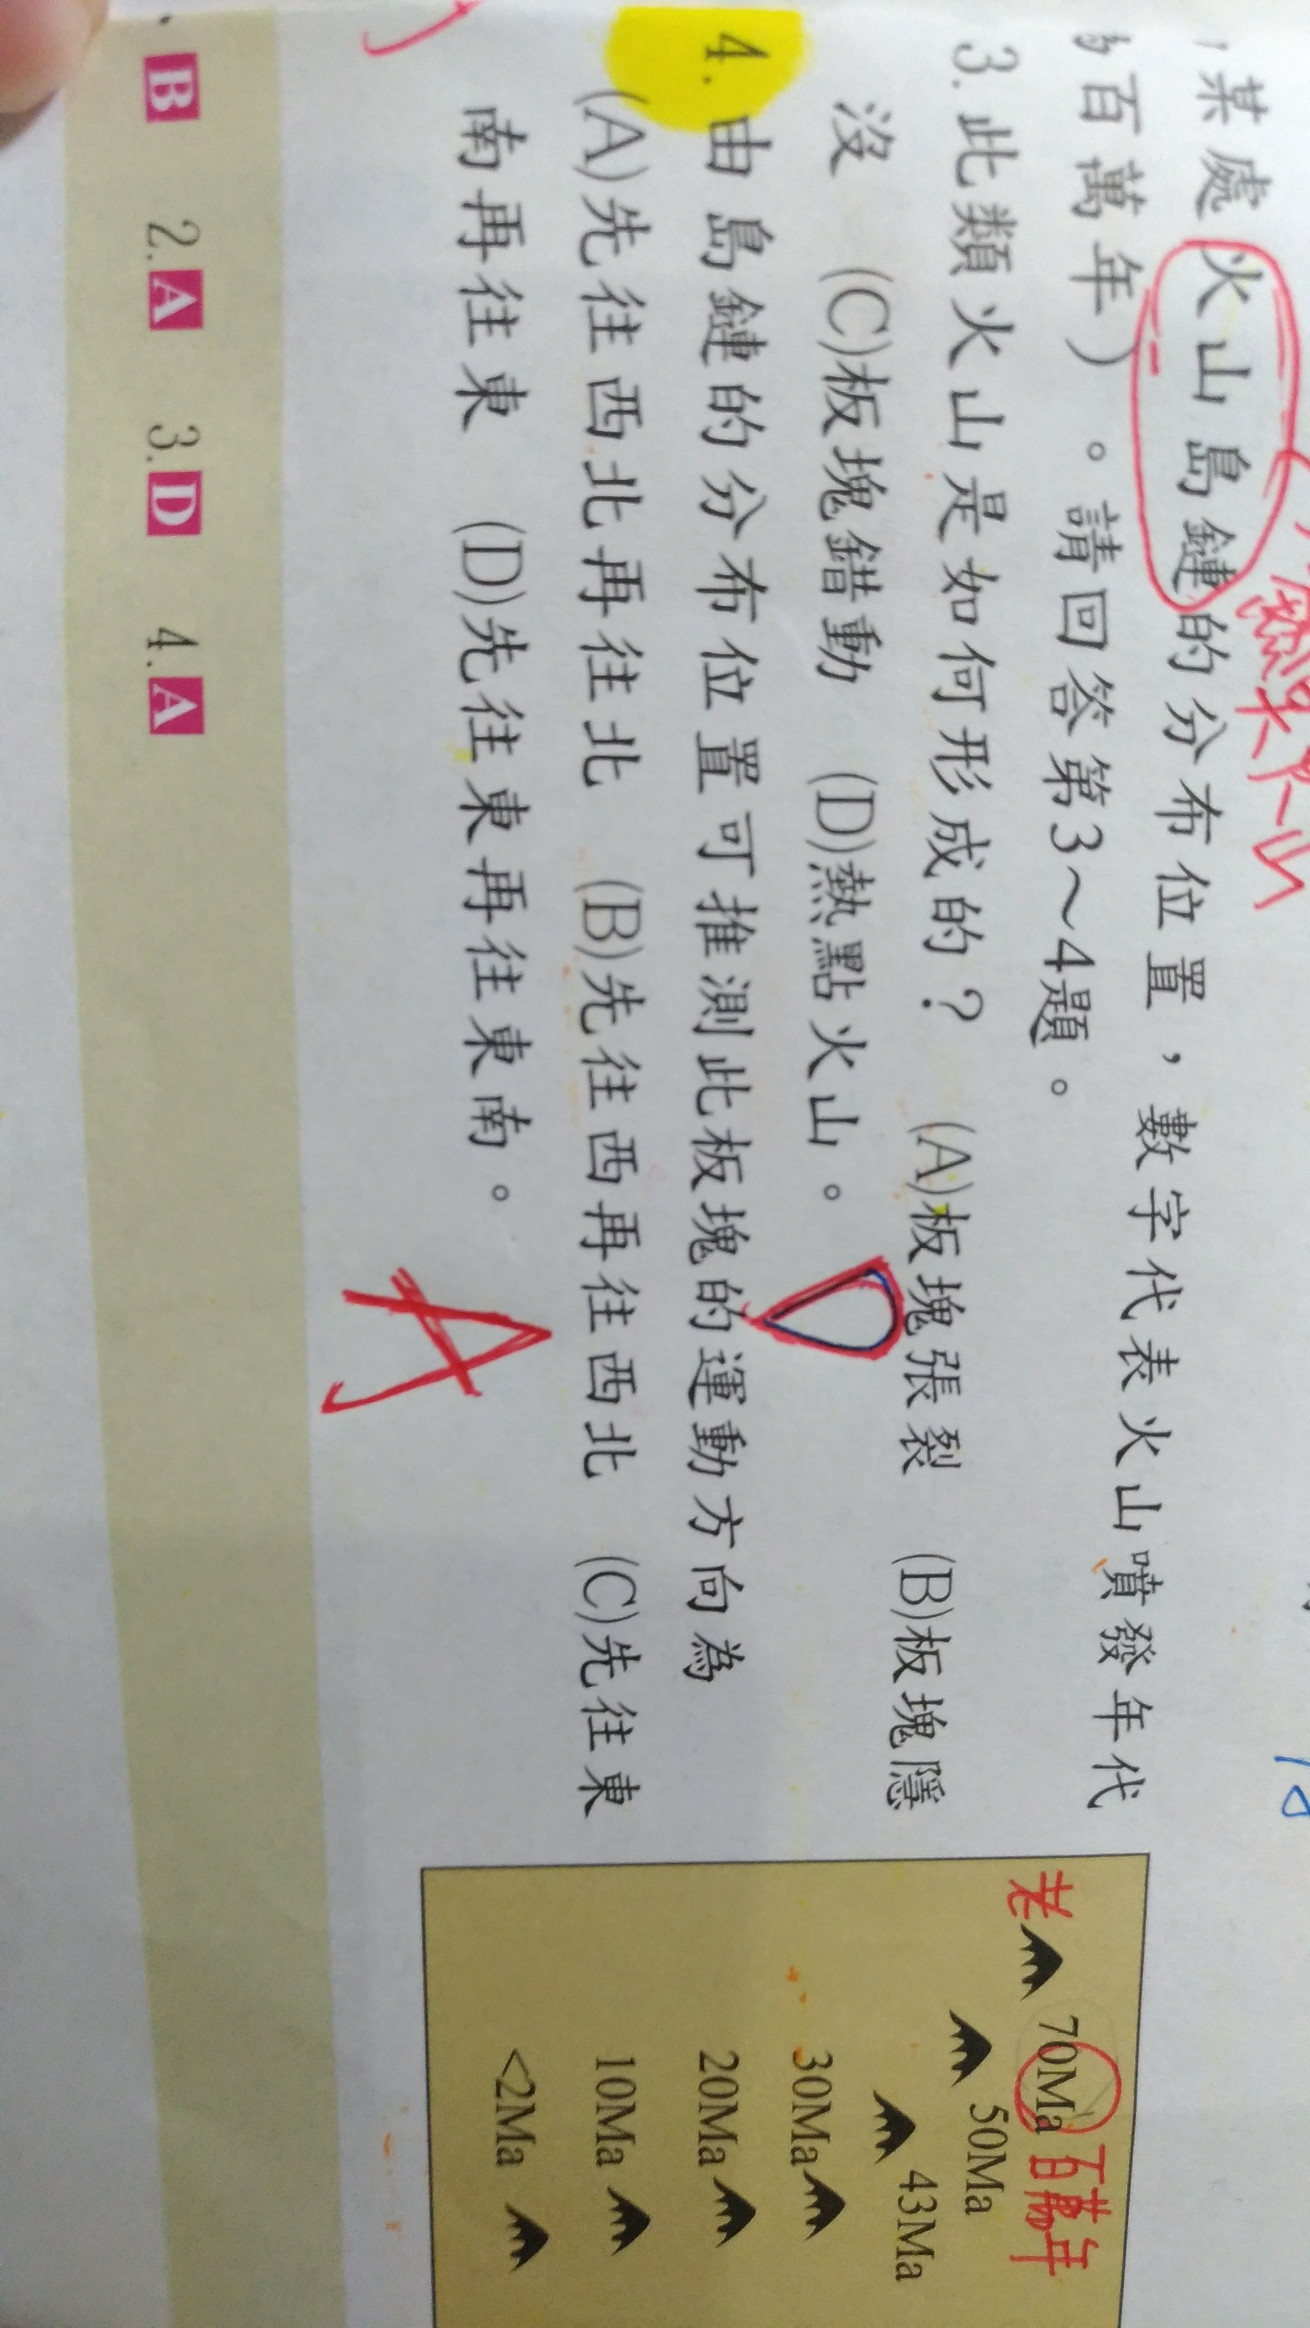 某處火山島鏈的分布位置，數字代表火山噴發年代
百萬年）。請回答第3～4題。
3.此類火山是如何形成的？ (A)板塊張裂 (B)板塊隱
沒 (C)板塊錯動 (D)熱點火山。
D
4.由島鏈的分布位置可推測此板塊的運動方向為
(A)先往西北再往北 (B)先往西再往西北 (C)先往東
南再往東 (D)先往東再往東南。
A
老
70Ma 百萬年
50Ma
43Ma
30Ma
20Ma
10Ma
<2Ma
B 2.A 3.D 4.A